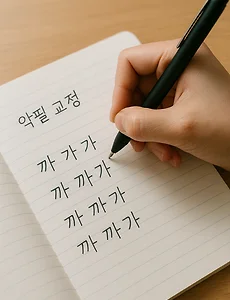 악필 교정
까 가 가
까 까 가
까 까 가
까 까 가